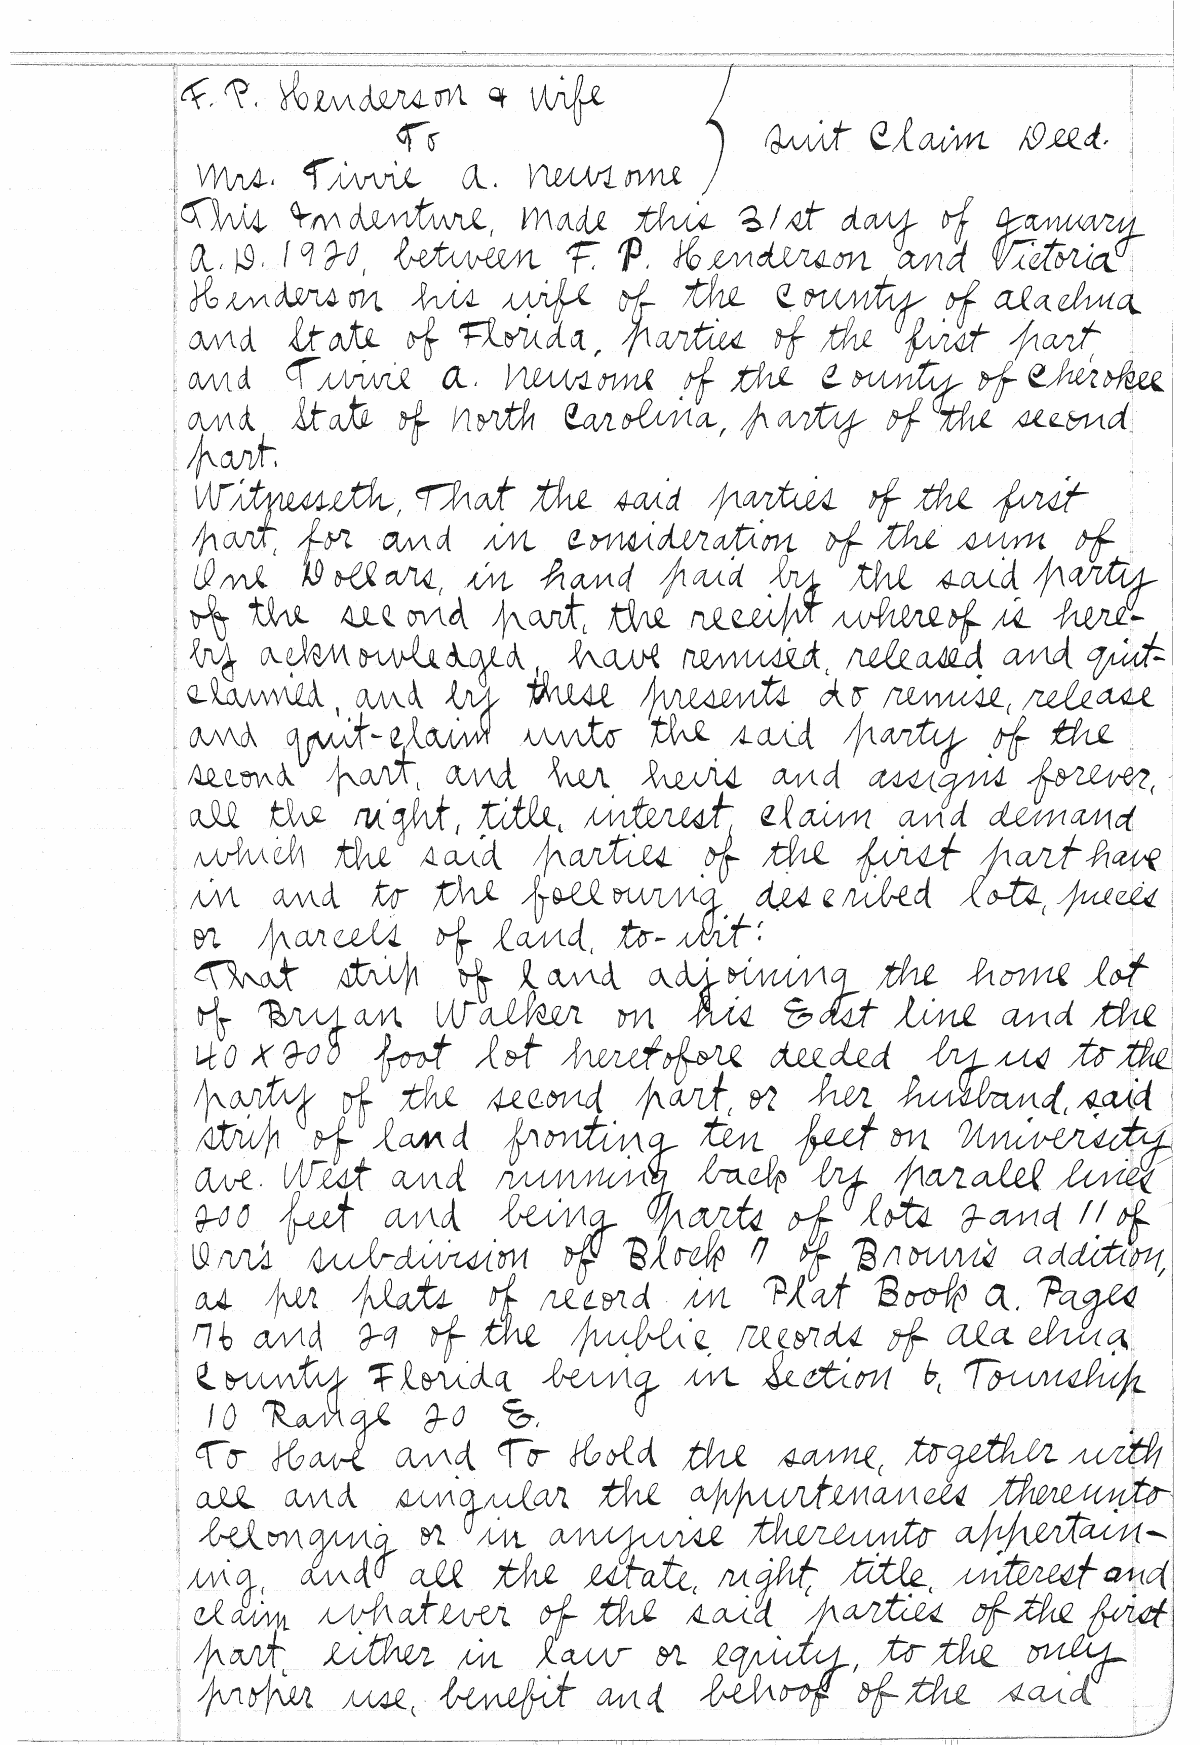 F. P. Henderson & Wife
To
Quit Claim Deed.
Mrs. Tivvie A. Newsome
This Indenture, Made this 31st day of January
A. D. 1920, between F. P. Henderson and Victoria
Henderson his wife of the County of Alachua
and State of Florida, parties of the first part,
and Tivvie A. Newsome of the County of Cherokee
and State of North Carolina, party of the second
part.
Witnesseth, That the said parties of the first
part, for and in consideration of the sum of
One Dollars, in hand paid by the said party
of the second part, the receipt whereof is here-
by acknowledged, have remised, released and quit-
claimed, and by these presents do remise, release
and quit-claim unto the said party of the
second part, and her heirs and assigns forever,
all the right, title, interest, claim and demand
which the said parties of the first part have
in and to the following described lots, pieces
or parcels of land, to-wit:
That strip of land adjoining the home lot
of Bryan Walker on his East line and the
40 x 200 foot lot heretofore deeded by us to the
party of the second part, or her husband, said
strip of land fronting ten feet on University
Ave. West and running back by paralel lines
200 feet and being parts of lots 2 and 11 of
Orr's subdivision of Block 7 of Brown's addition,
as per plats of record in Plat Book A. Pages
76 and 29 of the public records of Alachua
County Florida being in Section 6, Township
10 Range 20 E.
To Have and To Hold the same, together with
all and singular the appurtenances thereunto
belonging or in anywise thereunto appertain-
ing, and all the estate, right, title, interest and
claim whatever of the said parties of the first
part, either in law or equity, to the only
proper use, benefit and behoof of the said